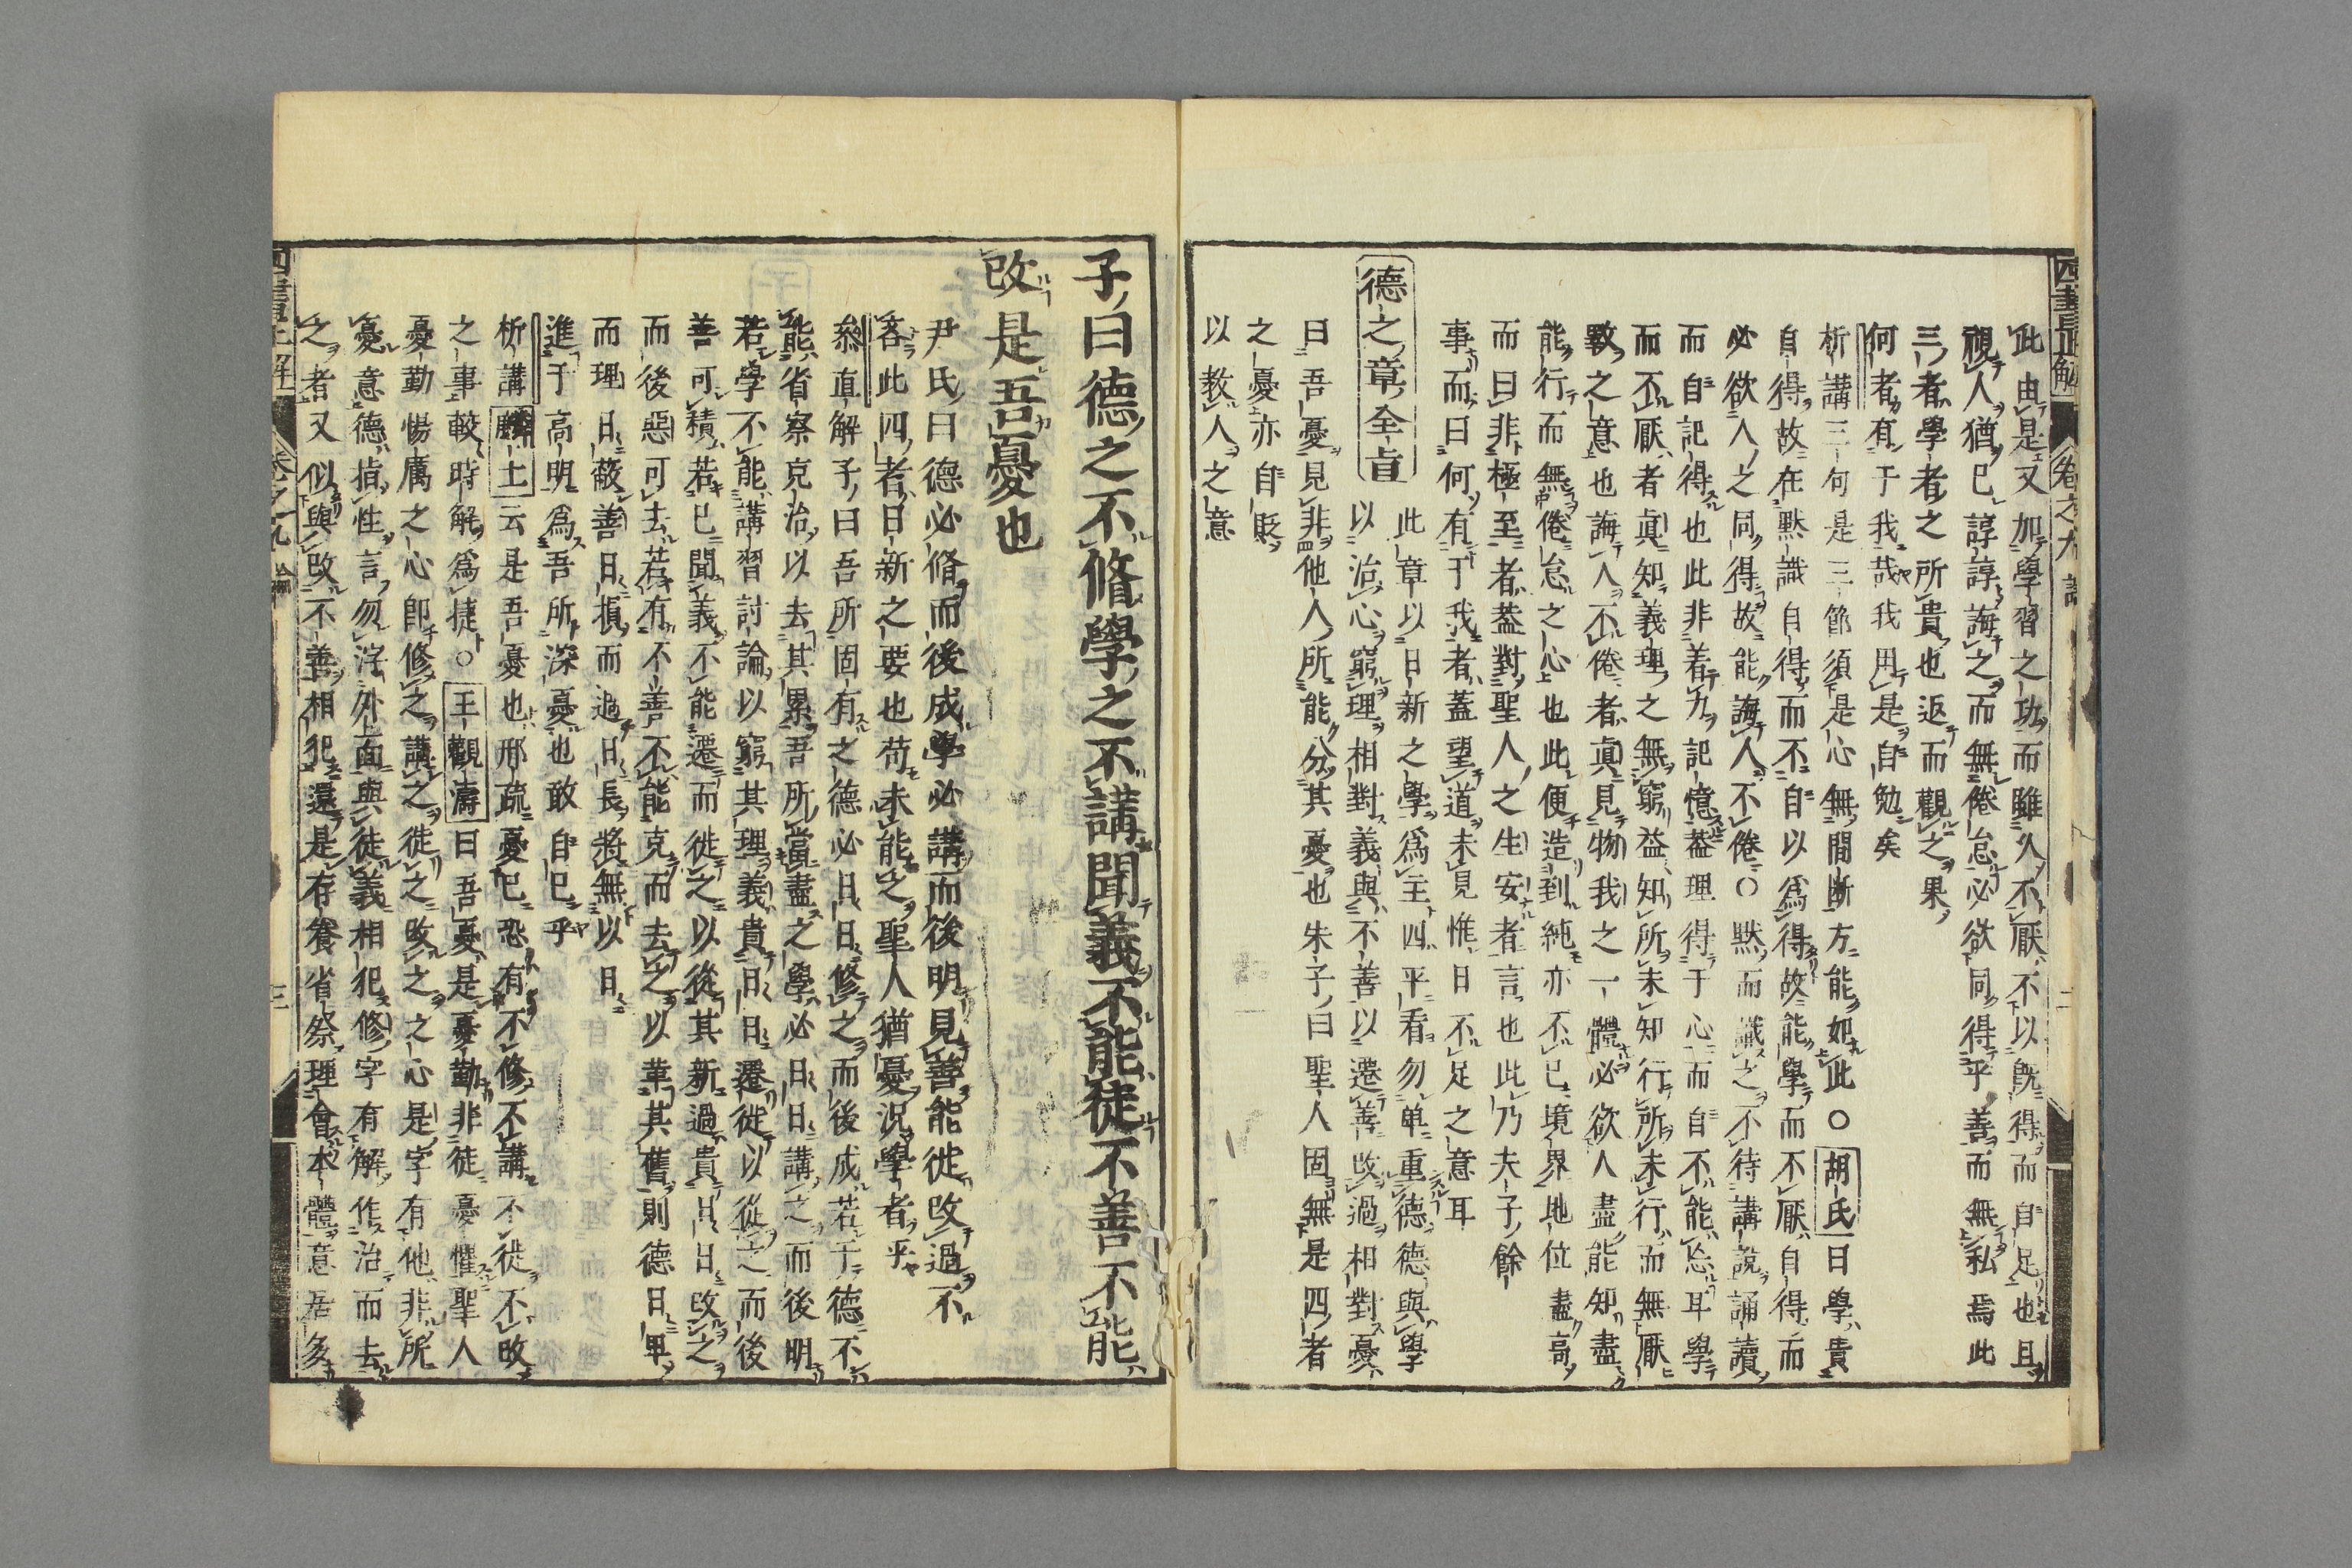 此由是又加學習之功而雖久不厭不以既得而自足也且
視人猶已諄諄誨之而無倦怠必欲同得乎善而無私焉此
三者學者之所貴也返而觀之果
何者有于我哉我用是自勉矣
析講三句是三節須是心無間断方能如此○胡氏曰學貴
自得故在默識自得而不自以為得故能學而不厭自得而
必欲人之同得故能誨人不倦○默而識之不待講說誦讀
而自記得也此非着力記憶蓋理得于心而自不能忘耳學
而不厭者真知義理之無窮益知所未知行所未行而無厭
斁之意也誨人不倦者真見物我之一體必欲人盡能知盡
能行而無倦怠之心也此便造到純亦不已境界地位盡高
而曰非極至者蓋對聖人之生安者言也此乃夫子餘
事而曰何有于我者蓋望道未見惟日不足之意耳
德之章全旨
此章以日新之學為主四平看勿单重德德與學
以治心窮理相對義與不善以遷善改過相對憂
曰吾憂見非他人所能分其憂也朱子曰聖人固無是四者
之憂亦自貶
以教人之意
子曰德之不脩學之不講聞義不能徙不善不能
改是吾憂也
尹氏曰德必脩而後成學必講而後明見善能徙改過不
吝此四者日新之要也苟未能之聖人猶憂況學者乎
叅直解子曰吾所固有之德必日日修之而後成若于德不
能省察克治以去其累吾所當盡之學必日日講之而後明
若學不能講習討論以窮其理義貴日日遷徙以從之而後
善可積若已聞義不能遷而徙之以從其新過貴日日改之
而後惡可去若有不善不能克而去之以革其舊則德日卑
而理日蔽善日損而過日長將無以日
進于高明為吾所深憂也敢自已乎
析講麟士云是吾憂也邢疏憂已恐有不修不講不徙不改
之事較時解為捷○王觀濤曰吾憂是憂勤非徒憂懼聖人
憂勤惕厲之心即修之講之徙之改之之心是字有他非所
憂意德指性言勿泞外面與徙義相犯修字有解作治而去
之者又似與改不善相犯還是存養省察理會本體意居多